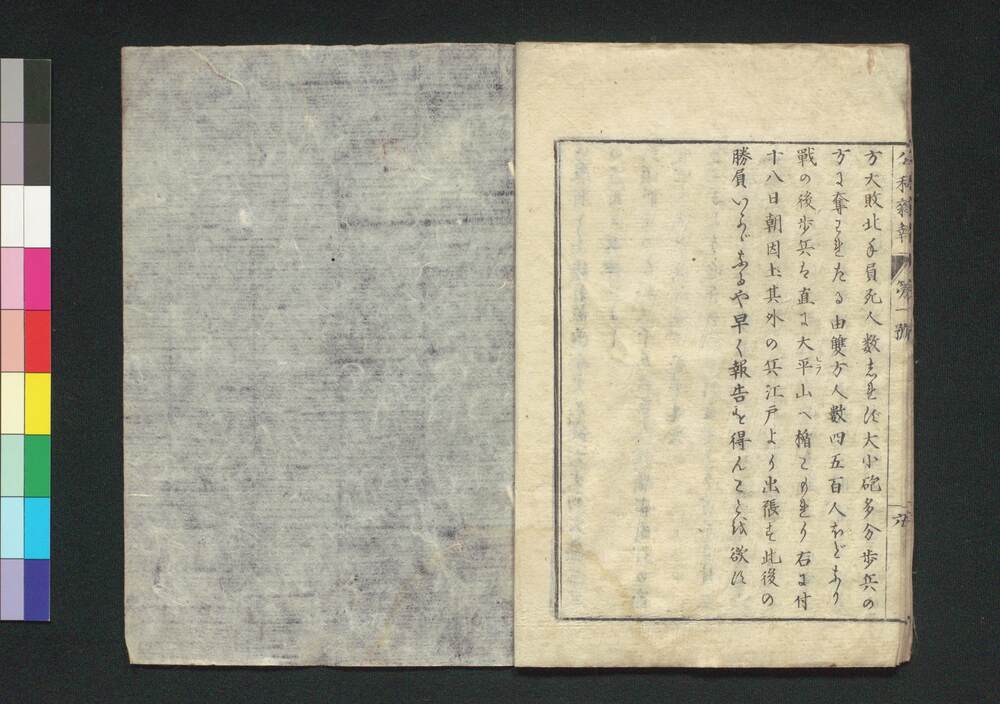 公私雜報
第一號
六
方大敗北手負死人数志れ須大小砲多分歩兵の
方に奪られたる由雙方人数四五百人ほどあり
戰の後歩兵は直に大平山へ楯こもれり右に付
ヒラ
十八日朝因土其外の兵江戸より出張す此後の
勝負いかゞあるや早く報告を得んことを欲す